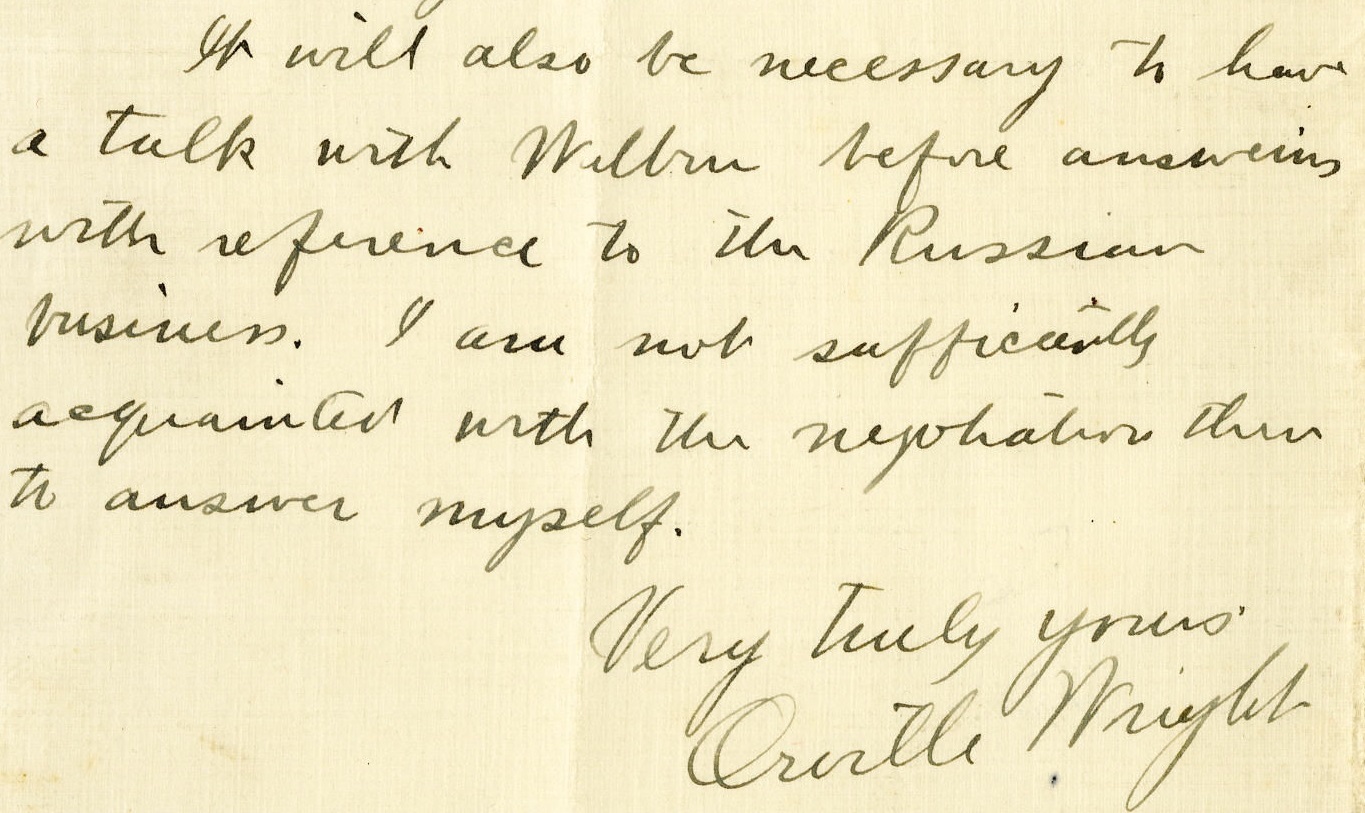 It will also be necessary to have
a talk with Wilbur before answering
with reference to the Russian
business. I am not sufficiently
acquainted with the negotiation there
to answer myself.
Very truly yours
Orville Wright